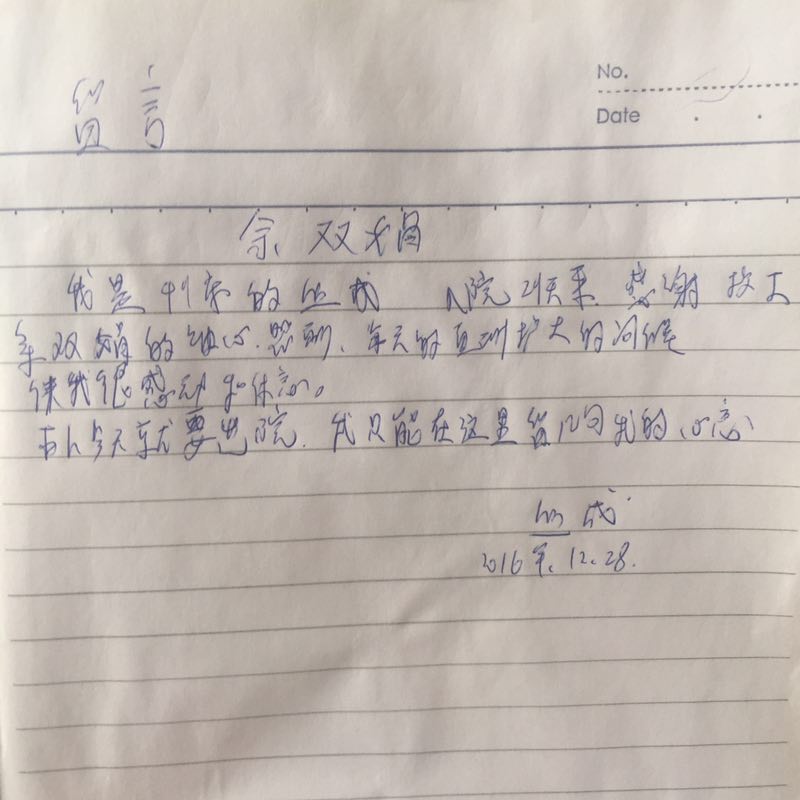 留言
No.
Date
余双娟
我是 床的 成 入院21天来 感谢护工
余双娟的细心照顾、每天的 护士的问候
使我很感动和 。
今天就要出院. 我只能在这里留几句我的心意
成
2016年.12.28.